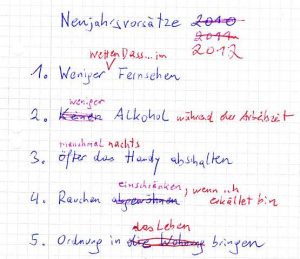 Neujahrsvorsätze 2010
2011
2012
WettenDass...im
1. Weniger Fernsehen
weniger
2. Keinen Alkohol während der Arbeitszeit
manchmal nachts
3. öfter das Handy abschalten
einschränken, wenn ich
4. Rauchen abgewöhnen erkältet bin
das Leben
5. Ordnung in die Wohnung bringen